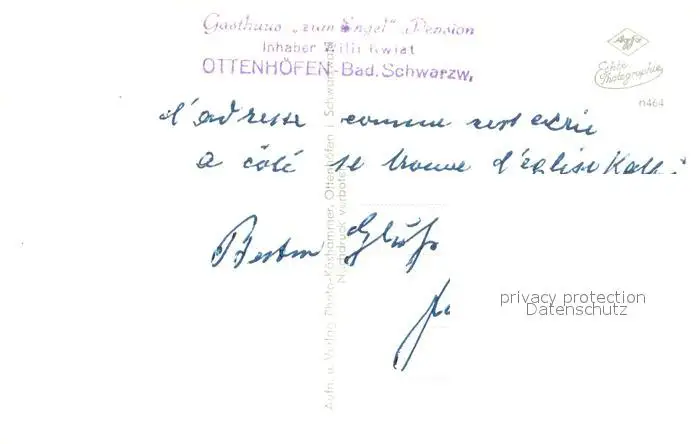 Gasthaus „zum Engel" Pension
Inhaber Willi Kwiat
OTTENHÖFEN - Bad. Schwarzw.
Agfa
Echte
Photographie
n464
d'adresse comme
a côté se trouve d'église Kath.
Besten
Aufn. u. Verlag Photo-Köshammer, Ottenhöfen i. Schwarzwald
Nachdruck verboten
privacy protection
Datenschutz